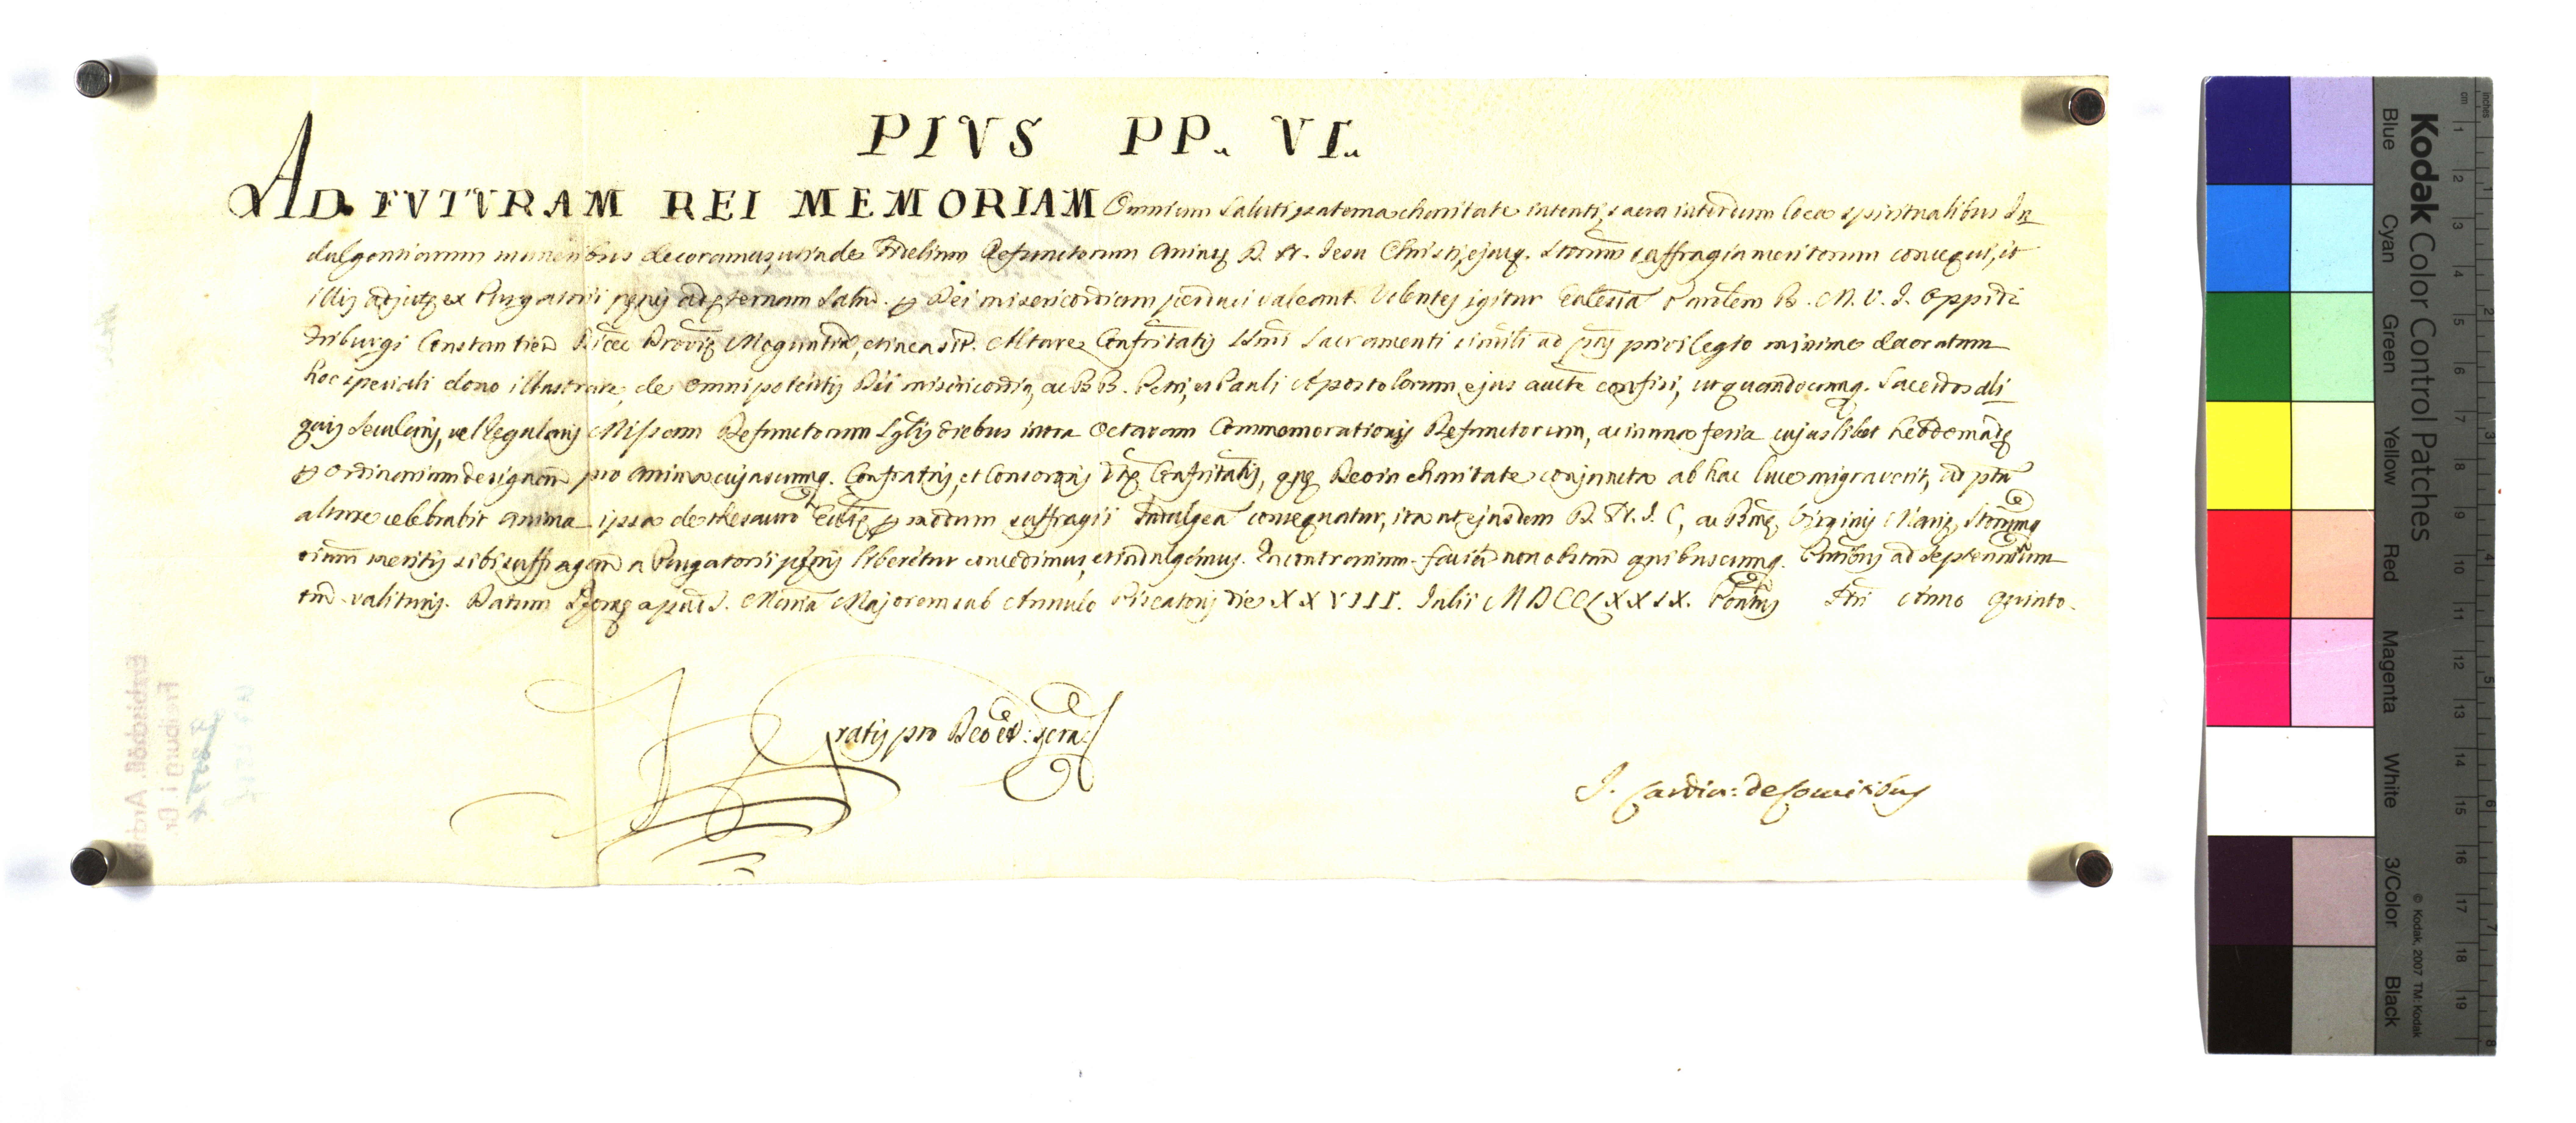 PIVS PP. VI.
AD FVTVRAM REI MEMORIAM Omnium saluti paterna charitate intenti, sacra interdum loca spiritualibus In
dulgentiarum muneribus decoramus, ut inde Fidelium Defunctorum Animę D. N. Jesu Christi, ejusq. Storum suffragia meritorum consequi, et
illis adjutę ex Purgatorii pęnis ad ęternam salut. p Dei misericordiam perduci valeant. Volentes igitur Ecclesia Parlem B. M. V. J. Oppidi
Triburgi Constantien Diœc Provię Moguntin, et in ea sit. Altare Confritatis Ssmi Sacramenti simili ad pns privilegio minime decoratum
hoc speciali dono illustrare, de omnipotentis Dei misericordia, ac BB. Petri, et Pauli Apostolorum ejus aucte confisi, ut quandocumq. Sacerdos ali
quis Secularis, vel Regularis Missam Defunctorum sglis diebus intra Octavam Commemorationis Defunctorum, ac in una feria cujuslibet hebdomadę
p ordinarium designan pro Anima cujuscumq. Confratris, et Consororis dtę Confritatis, quę Deo in charitate conjuncta ab hac luce migraverit, ad ptum
altare celebrabit anima ipsa de thesauro Ecclię p modum suffragii Indulgen consequatur, ita ut ejusdem D. N. J. C, ac Bmę Virginis Marię, Storumq
oium meritis sibi suffragan a Purgatorii pęnis liberetur concedimus, et indulgemus. In contrarium facien non obstan quibuscumq. Pntibus ad Septennium
tm valituris. Datum Romę apud S. Maria Majorem sub Annulo Piscatoris die XXVIII. Julii MDCCLXXIX. Pontus Nri Anno Quinto.
Gratis pro Deo et
J. Cardin: de Comitibus
Kodak Color Control Patches
Blue Cyan Green Yellow Red Magenta White 3/Color Black
© Kodak, 2007 TM: Kodak
inches 1 2 3 4 5 6 7 8
cm 1 2 3 4 5 6 7 8 9 10 11 12 13 14 15 16 17 18 19
Erzbischöfl. Archiv
Freiburg i. Br.